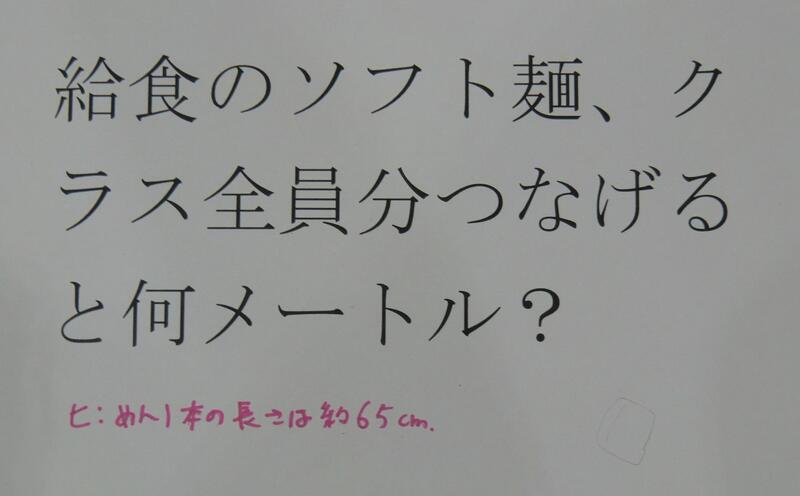 給食のソフト麺、ク
ラス全員分つなげる
と何メートル？
ヒ：めん1本の長さは約65cm.